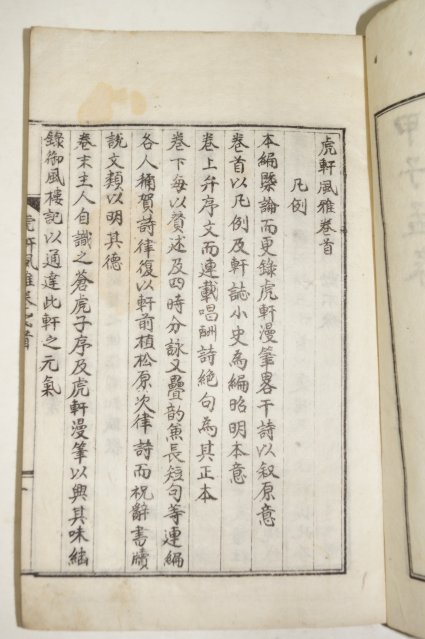 虎軒風雅卷首
凡例
本編槩論而更錄虎軒漫筆畧干詩以叙原意
卷首以凡例及軒誌小史為編昭明本意
卷上弁序文而連載唱酬詩絶句為其正本
卷下每以贊述及四時分詠又疊韵兼長短句等連編
各人稱賀詩律復以軒前植松原次律詩而祝辭書牘
說文類以明其德
卷末主人自識之蒼虎子序及虎軒漫筆以興其味緬
錄御風樓記以通達此軒之元氣
虎軒風雅卷之首